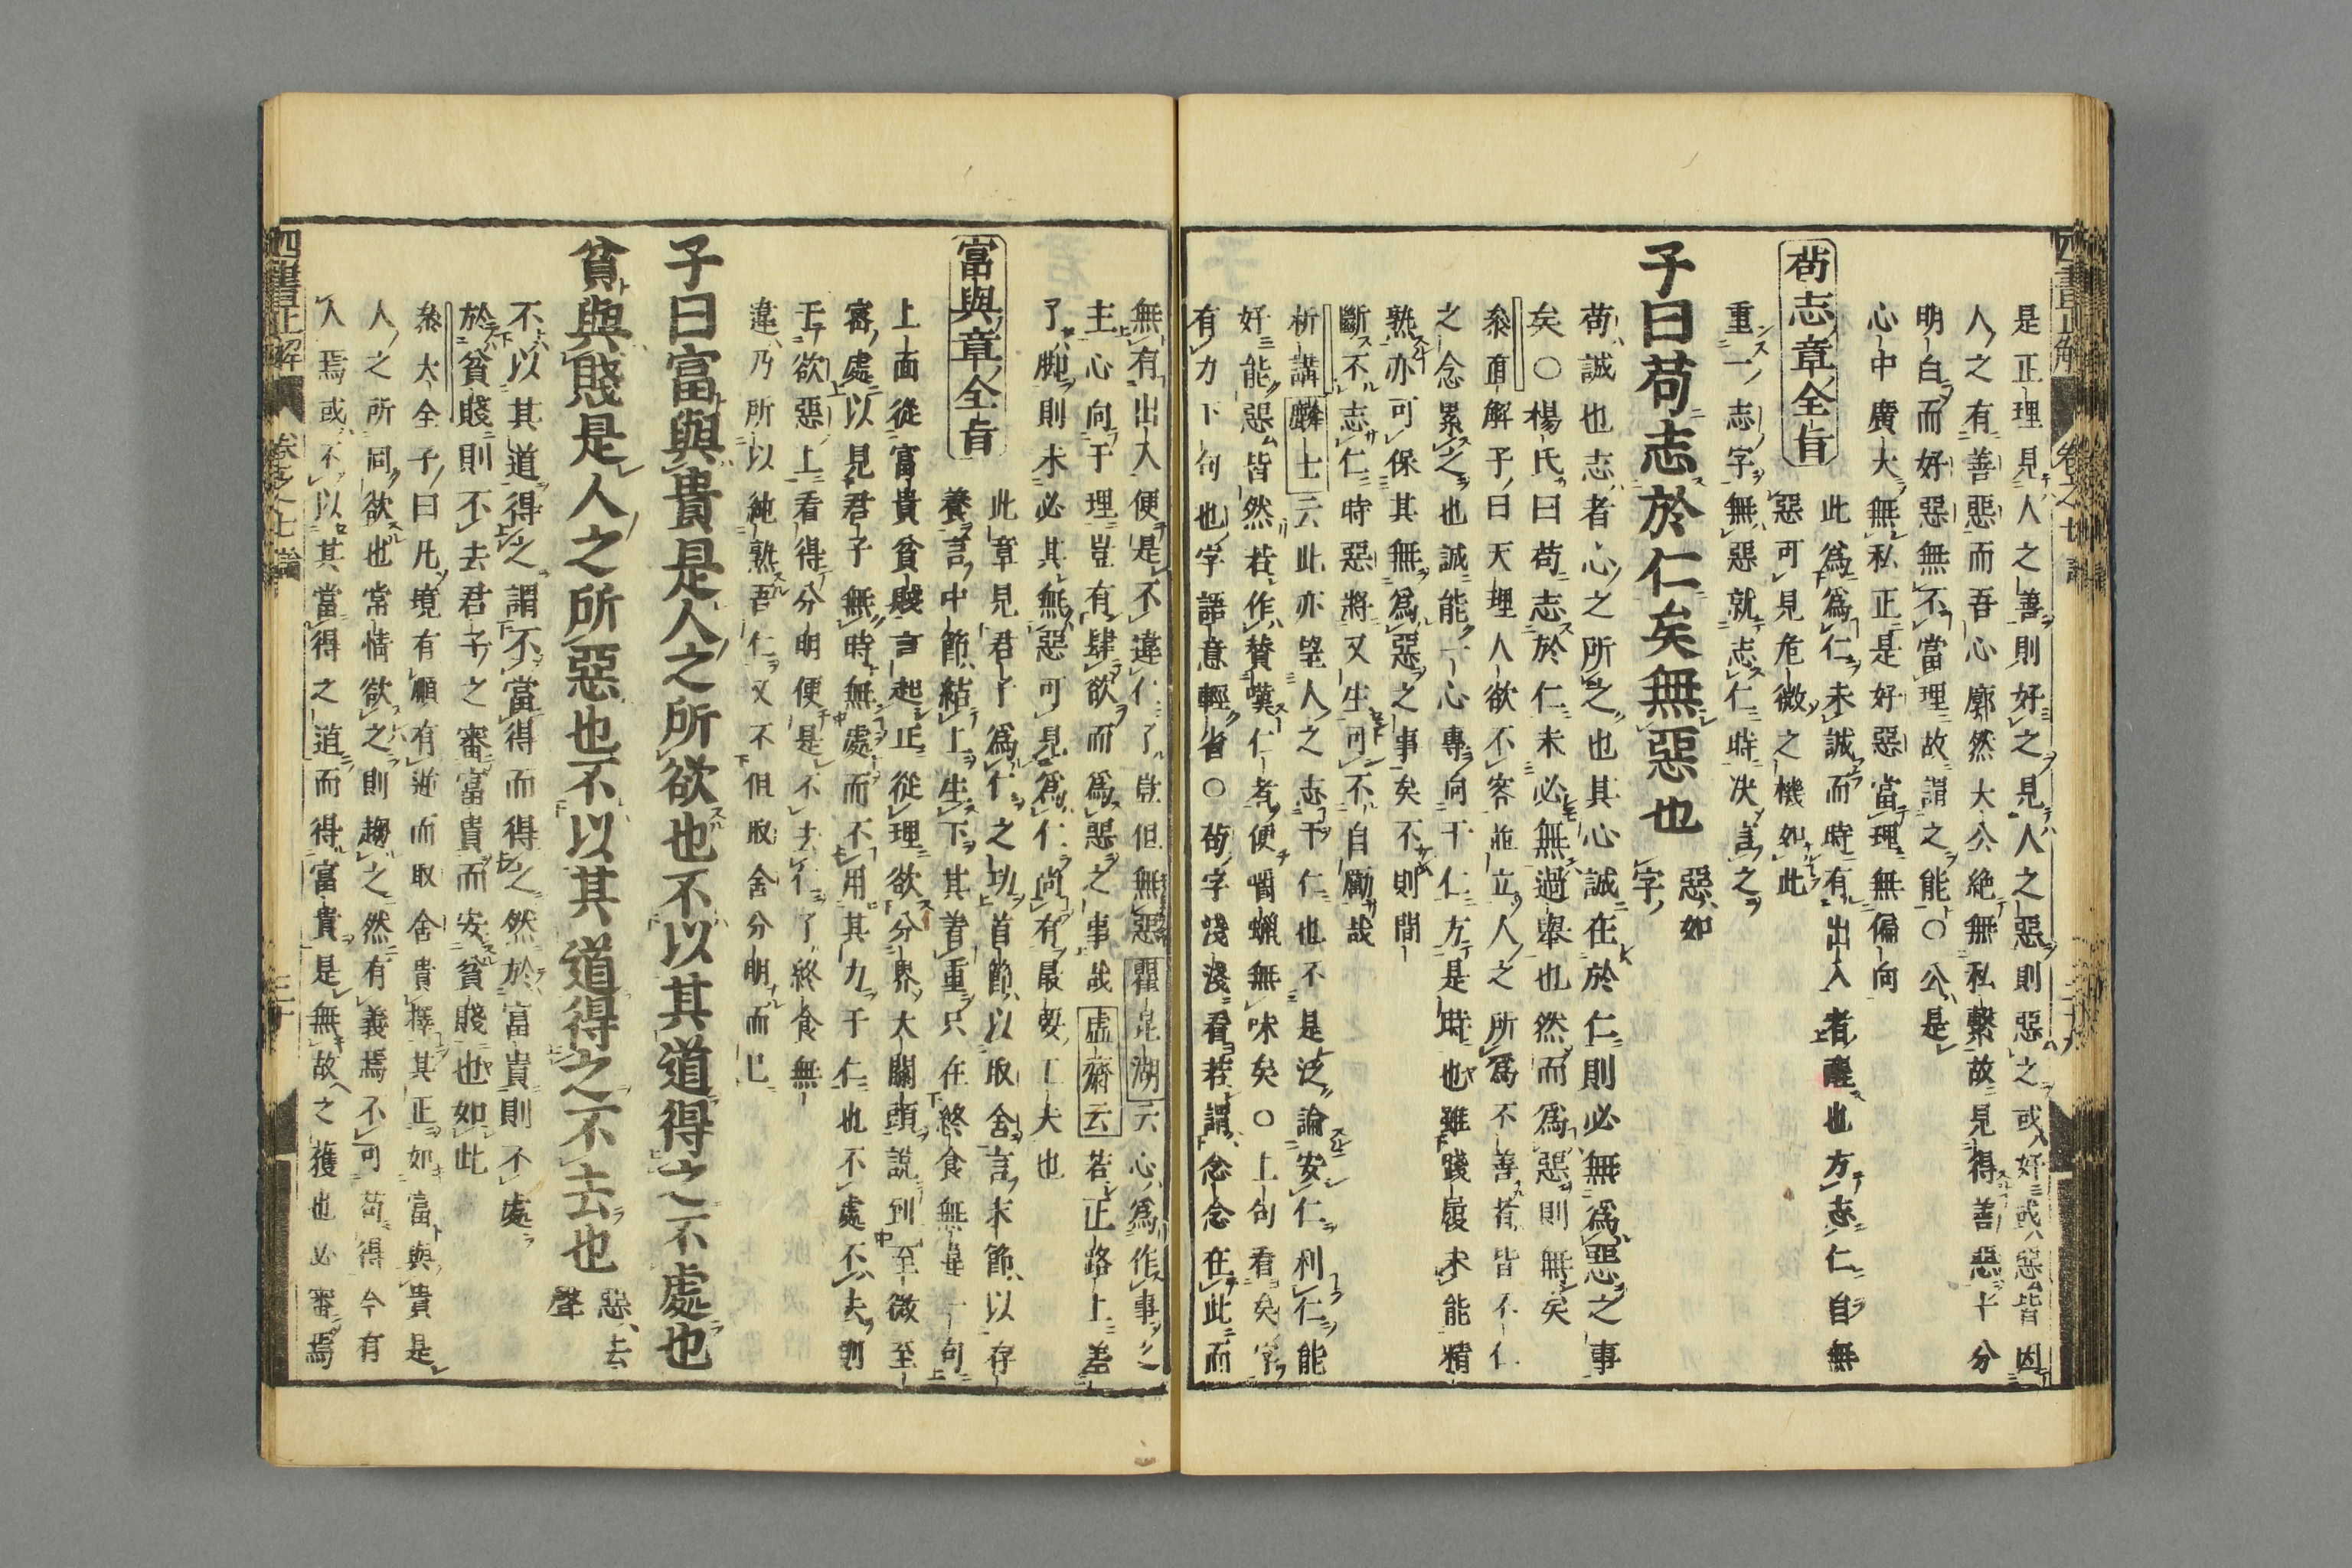 是正理見人之善則好之見人之惡則惡之或好或惡皆因
人之有善惡而吾心廓然大公絶無私繫故見得善惡十分
明白而好惡無不當理故謂之能〇公是
心中廣大無私正是好惡當理無偏向
苟志章全旨
此為為仁未誠而時有出入者醒也方志仁自無
惡可見危微之機如此
重一志字無惡就志仁時決言之
子曰苟志於仁矣無惡也
惡如
字
苟誠也志者心之所之也其心誠在於仁則必無為惡之事
矣〇楊氏曰苟志於仁未必無過舉也然而為惡則無矣
叅直解予曰天理人欲不容並立人之所為不善者皆不仁
之念累之也誠能一心專向于仁方是時也雖踐履未能精
熟亦可保其無為惡之事矣不則間
斷不志仁時惡將又生可不自勵哉
析講麟士云此亦望人之志于仁也不是泛論安仁利仁能
好能惡皆然若作贊嘆仁者便嚼蠟無味矣〇上句看矣字
有力下句也字語意輕省〇苟字淺淺看若謂念念在此而
無有出入便是不違仁了豈但無惡霍昆湖云心為作事之
主心向于理豈有肆欲而為惡之事哉虛齋云若正路上差
了脚則未必其無惡可見為仁尚有最要工夫也
富與章全旨
此章見君子為仁之功首節以取舍言末節以存
養言中節結上生下其着重只在終食無違一句
上面從富貴貧賤言起正從理欲分界大關頭說到至微至
密處以見君子無時無處而不用其力于仁也不處不去則
于欲惡上看得分明便是不去仁了終食無
違乃所以純熟吾仁又不但取舍分明而已
子曰富與貴是人之所欲也不以其道得之不處也
貧與賤是人之所惡也不以其道得之不去也
惡去
聲
不以其道得之謂不當得而得之然於富貴則不處
於貧賤則不去君子之審富貴而安貧賤也如此
叅大全予曰凡境有順有逆而取舍貴擇其正如富與貴是
人之所同欲也常情欲之則趨之然有義焉不可苟得今有
人焉或不以其當得之道而得富貴是無故之獲也必審焉
四書正解
卷之七論
三十